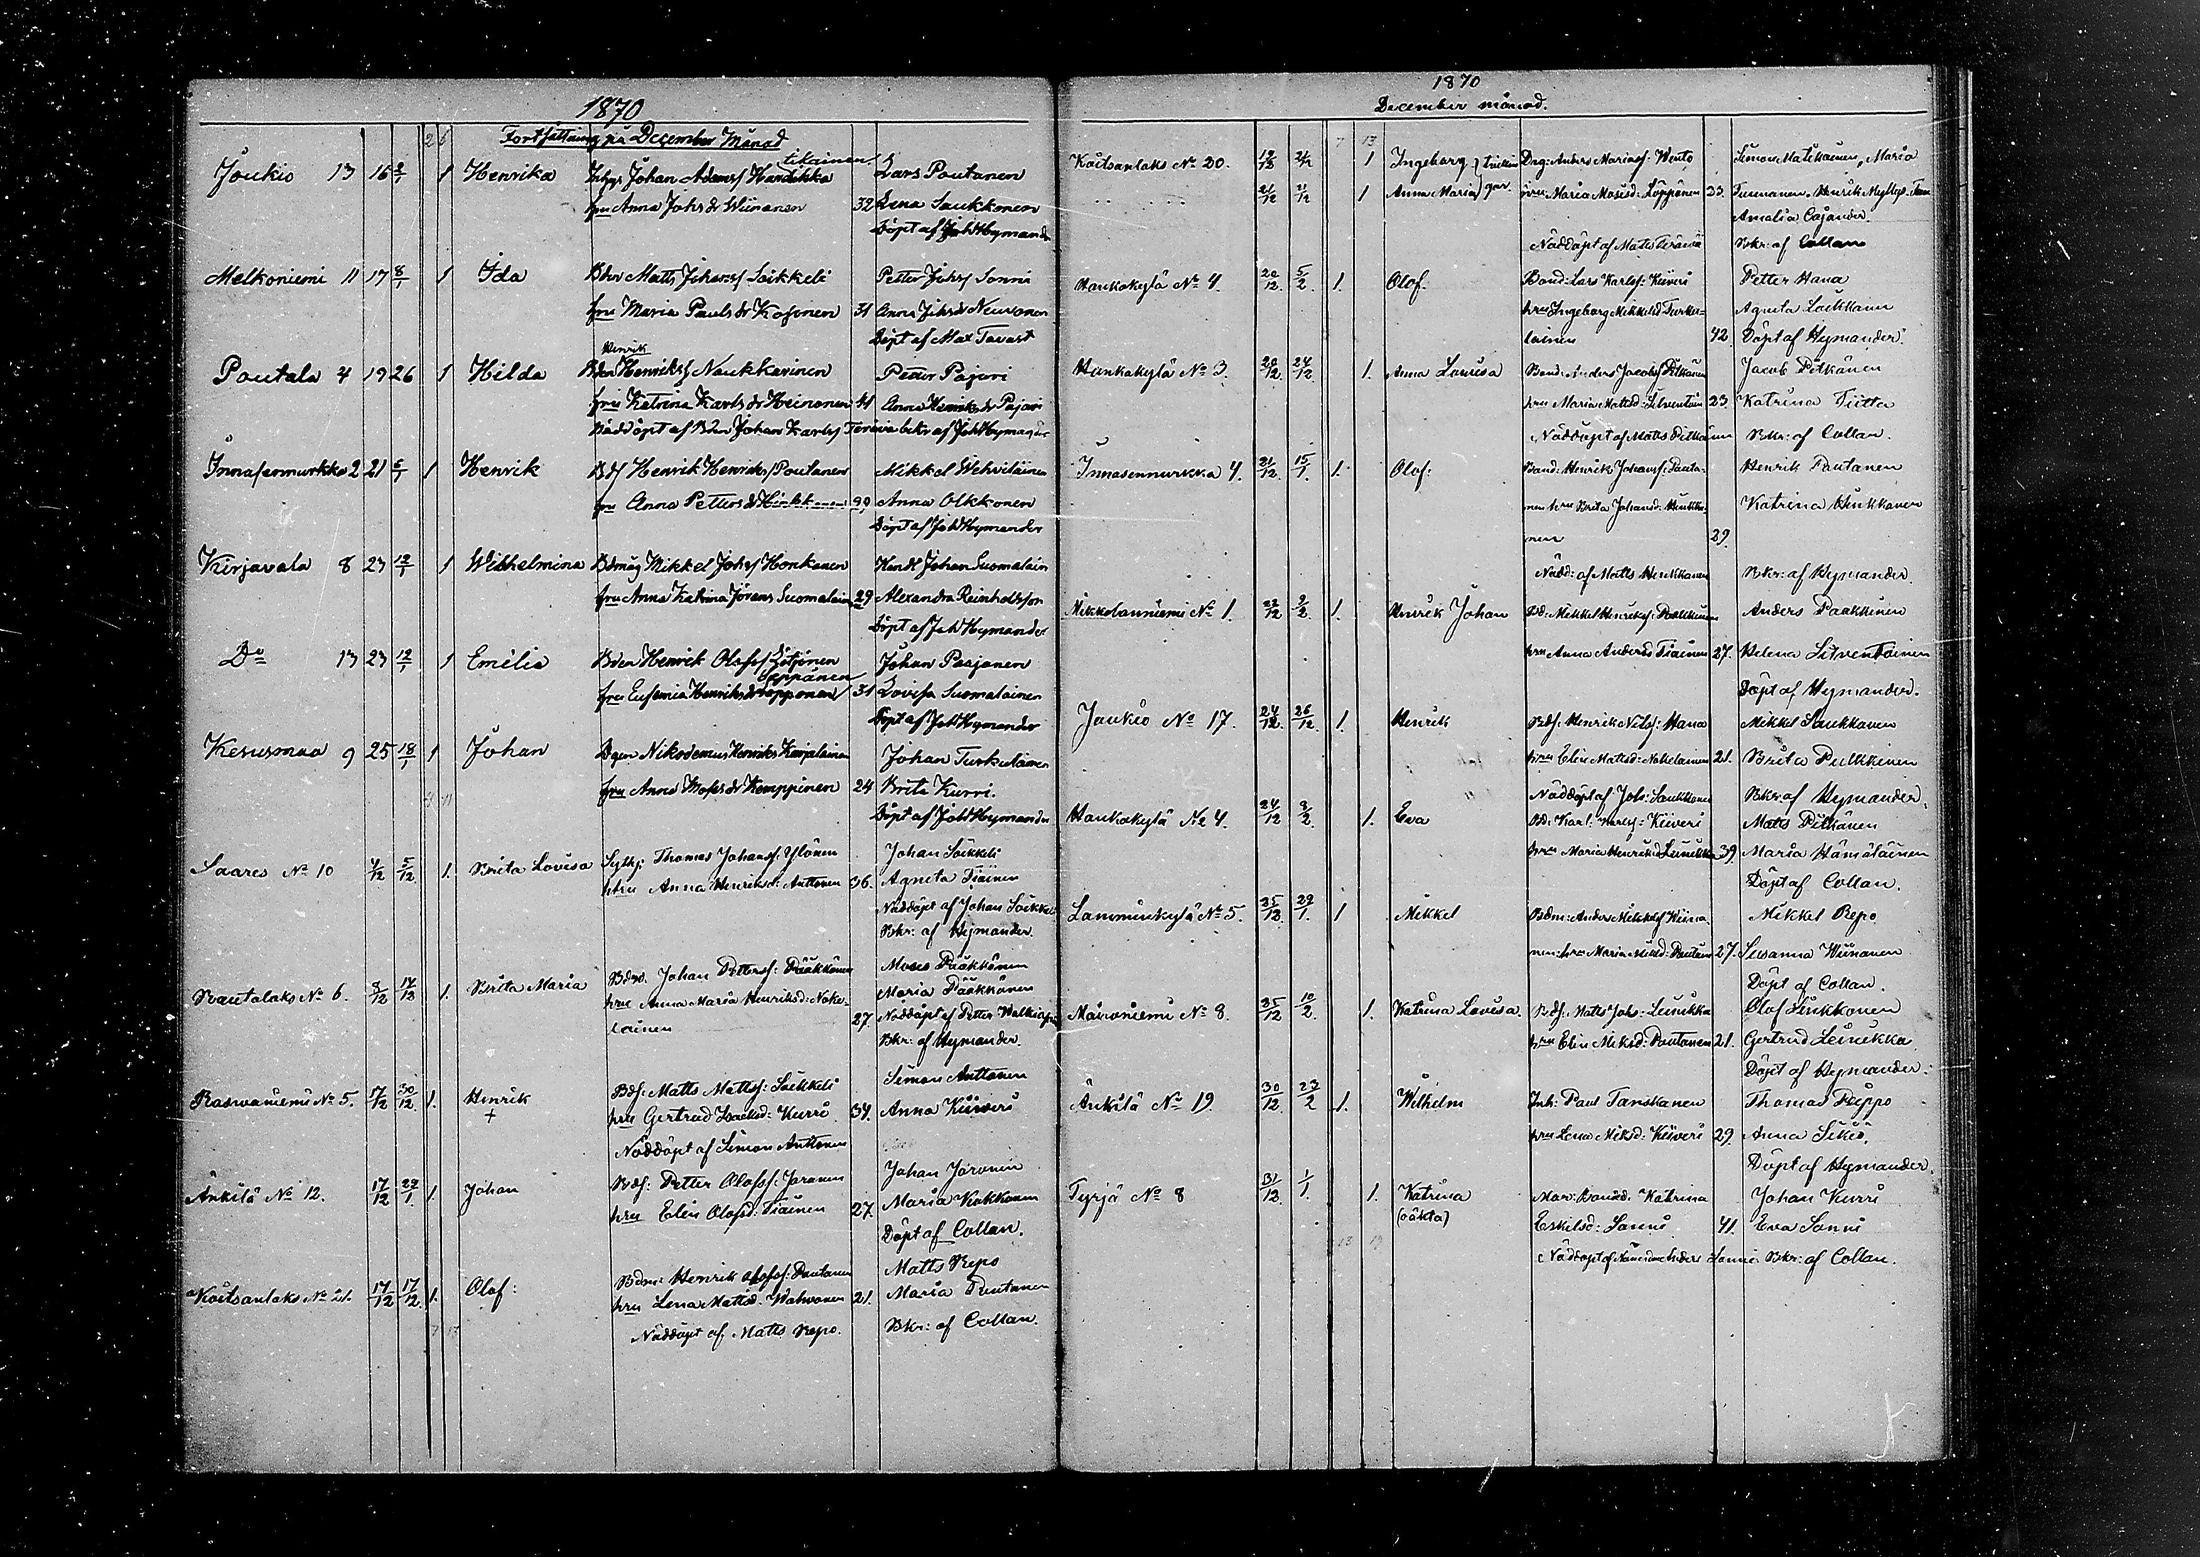 1870
Fortsättning på December Månad
Joukio 13 16 8/1 1 Henrika Inhys Johan Adamsf tikainen
fru Anna Johsdr Wiinanen 32
Lars Poutanen
Lena Saukkonen
Döpt af Joh Hymander
Melkoniemi 11 17 8/1 1 Ida Bden Matts Johansf Soikkeli
fru Maria Paulsdr Kosonen 31
Petter Johsf Sonni
Anna Johsdr Neuvonen
Döpt af Max Tavast
Poutala 4 19 26 1 Hilda Henrik
Bden Henriksf Naukkarinen
fru Katrina Karlsdr Heinonen 41
Petter Pajari
Anna Henriksdr Pajari
Nöddöpt af Bden Johan Karlsf Teräväi bekr af Joh Hymander
Innasenmurkko 2 21 6/1 1 Henrik Bdsf Henrik Henriksf Poutanen
fru Anna Pettersdr Hinkkanen 29
Mikkel Wehviläinen
Anna Olkkonen
Döpt af Joh Hymander
Kirjavala 8 23 12/1 1 Wilhelmina Bdmåg Mikkel Johsf Honkanen
fru Anna Katrina Jörans Suomalain 29
Handl Johan Suomalain
Alexandra Reinholdsson
Döpt af Joh Hymander
Do 13 23 12/1 1 Emilia Bden Henrik Olofsf Lötjönen
Seppänen
fru Eufemia Henriksdr 31
Johan Pasjanen
Lovisa Suomalainen
Döpt af Joh Hymander
Kesusmaa 9 25 18/1 1 Johan Bden Nikodemus Henriks Karjalainen
fru Anna Mosisdr Kemppinen 24
Johan Turkulainen
Brita Kurri.
Döpt af Joh Hymander
Saares No 10 4/12 5/12 1. Brita Lovisa Sytn: Thomas Johansf: Ylönen
hru Anna Henriksd: Anttonen 36.
Johan Soikkeli
Agneta Tiainen
Nöddöpt af Johan Soikkeli
Bkr: af Hymander.
Rautalaks No 6. 8/12 17/12 1. Brita Maria Bdm. Johan Petterss: Pääkkönen
hru Anna Maria Henriksd: Noke-
lainen 27.
Moses Pääkkönen
Maria Pääkkönen
Nöddöpt af Petter
Bkr: af Hymander.
Raswaniemi No 5. 17/12 30/12 1. Henrik Bdsf: Matts Mattsf: Soikkeli
+ hru Gertrud Isacksd: Kurri 34.
Nöddöpt af Simon Anttonen
Simon Anttonen
Anna Kiiveri
Änkilä No 12. 17/12 22/1 1. Johan Bdsf: Petter Olofsf: Jaronen
hru Elin Olofsd: Tiainen 27.
Johan Jaronen
Maria Kokkonen
Döpt af Collan.
Koitsanlaks No 21. 17/12 17/12 1. Olof: Bdm: Henrik Olofsf: Pautanen
hru Lena Mattsd: Wahvanen 21.
Nöddöpt af Matts Repo.
Matts Repo
Maria Pautanen
Bkr: af Collan.
1870
December månad.
Koitsanlaks No 20. 19/12 21/12 1 Ingeborg } tvillin Drg: Anders Mariasf: Wento
21/12 21/12 1 Anna Maria } gar hru Maria Mosesd: Löppönen 33.
Simon Matikainen, Maria
Amalia Cajander.
Nöddöpt af Matts Teräväi Bkr: af Collan
Hankakylä No 4. 20/12 5/2 1. Olof: Bond: Lars Karlsf: Kiiveri
hru Ingeborg Mikkelsd Turku-
lainen 42
Petter Hana
Agneta Loikkanen
Döpt af Hymander.
Hankakylä No 3. 20/12 24/12 1. Anna Lovisa Bond: Anders Jacobsf Pitkänen
hru Maria Mattsd: Silventoin 23.
Nöddöpt af Matts Pitkänen
Jacob Pitkänen
Katrina Tiitta
Bkr: af Collan.
Innasenmurkka 4. 21/12 15/1 1. Olof: Bond: Henrik Johansf: Pauta-
nen hru Brita Johansd. Hinkka-
nen 29.
Nödd: af Matts Hinkkanen
Henrik Pautanen
Katrina Hinkkanen
Bkr: af Hymander.
Mikkolanniemi No 1. 22/12 2/2 1. Henrik Johan Bd: Mikkel Henriksf: Paakkinen
hru Anna Andersd Tiainen 27.
Anders Paakkinen
Helena Silventoinen
Döpt af Hymander.
Jaukio No 17. 24/12 26/12 1. Henrik Bdsf: Henrik Nilsf: Hana
hru Elin Mattsd: Nokelainen 21.
Nöddöpt af Joh: Saukkonen
Mikkel Saukkonen
Brita Pulkkinen
Bkr: af Hymander.
Hankakylä No 4. 24/12 2/2 1. Eva Bd: Karl: Karlsf: Kiiveri
hru Maria Henriksd Leinikka 39.
Matts Pitkänen
Maria Hämäläinen
Döpt af Collan.
Lamminkylä No 5. 25/12 29/1. 1 Mikkel Bdm: Anders Mikkelsf Wiina-
nen: hru Maria Niksd: Pautan 27.
Mikkel Repo
Susanna Wiinanen
Döpt af Collan.
Moironiemi No 8. 25/12 10/2 1. Katrina Lovisa. Bdsf: Matts Johs: Leinikka
hru Elin Miksd: Pautanen 21.
Olof Sinkkonen
Gertrud Leinikka
Döpt af Hymander.
Änkilä No 19. 30/12 23/2 1. Wilhelm Inh: Paul Tanskanen
hru Lena Miksd: Kiiveri 29.
Thomas Piippo
Anna Sikiö.
Döpt af Hymander.
Tyrjä No 8 31/12 1/1. 1. Katrina
(oäkta)
Bondd. Katrina
Eskilsd: Sonni 41.
Johan Kurri
Eva Sonni
Nöddöpt af Anders Sonni. Bkr: af Collan.